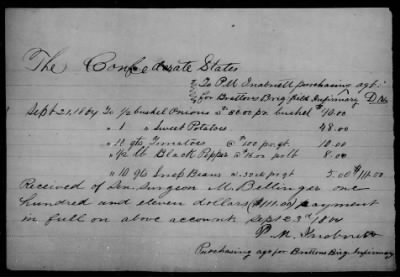 The Confederate States
To P.M. Inabnett purchasing agt.
for Brattons Brig. field Infirmary Dr
Sept 21, 1864 To 1/2 bushel Onions @ 80.00 pr bushel $40.00
" 1 " Sweet Potatoes 48.00
" 10 qts Tomatoes @ 1.00 pr qt. 10.00
" 1/2 lb Black Pepper @ 16.00 pr lb 8.00
" 10 qts Snap Beans @ .50 cts pr qt 5.00 $111.00
Received of Sen. Surgeon M. Bellinger one
hundred and eleven dollars ($111.00) payment
in full on above account Sept 23rd 1864
P. M. Inabnett
Purchasing agt for Brattons Brig. Infirmary